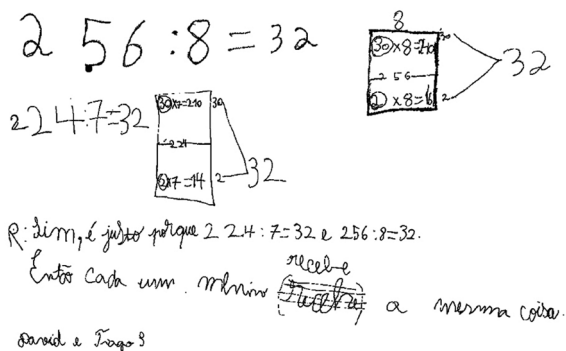 256:8=32
8
30×8=240 30
256
2×8=16 2
32
224:7=32
30×7=210 30
224
2×7=14 2
32
R: Sim, é justo porque 224:7=32 e 256:8=32.
Então cada um menino recebe a mesma coisa.
David e Tiago S